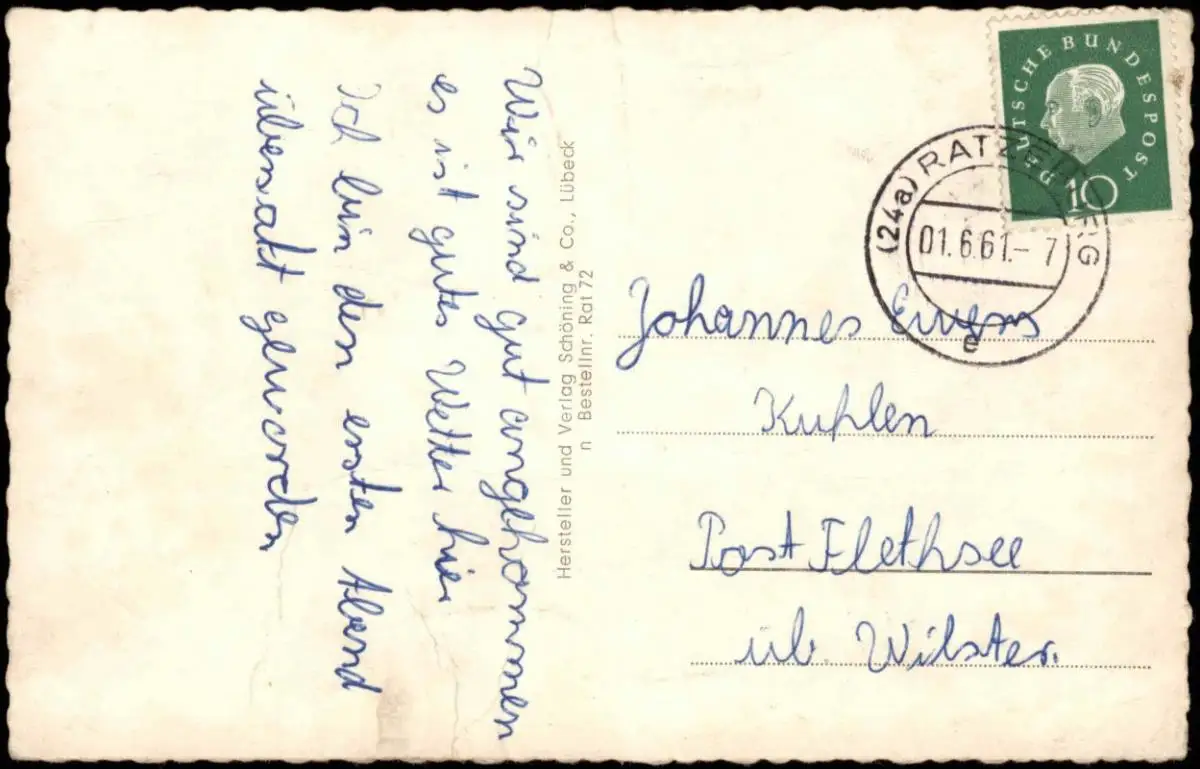 Wir sind gut angekommen
es ist gutes Wetter hier
Ich bin den ersten Abend
übersatt geworden
Hersteller und Verlag Schöning & Co., Lübeck
n Bestellnr. Rat 72
DEUTSCHE BUNDESPOST
10
(24a) RATZEBURG
01.6.61.- 7
e
Johannes
Kuhlen
Post Flethsee
üb. Wilster.